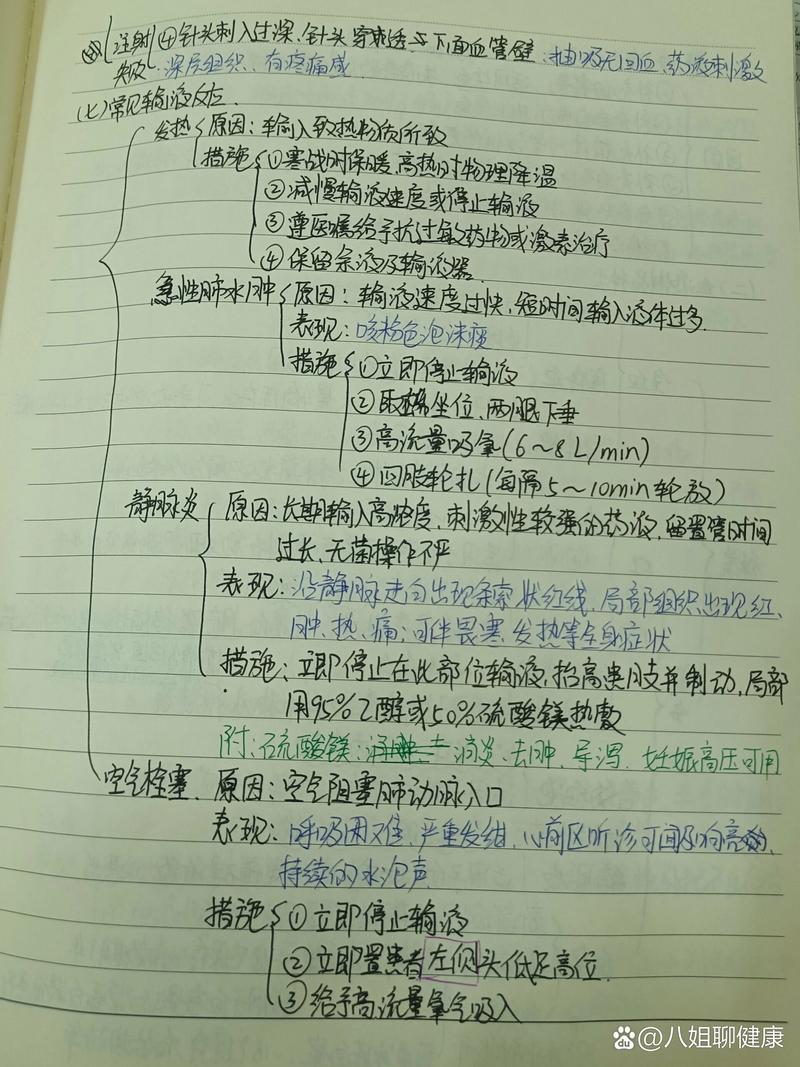 注射 ④针头刺入过深、针头穿刺透下面血管壁、抽吸无回血、药液刺激
失败 深层组织、有疼痛感
(七)常见输液反应
发热 原因：输入致热物质所致
措施 ①寒战时保暖、高热时物理降温
②减慢输液速度或停止输液
③遵医嘱给予抗过敏药物或激素治疗
④保留余液及输液器
急性肺水肿 原因：输液速度过快、短时间输入液体过多
表现：咳粉色泡沫痰
措施 ①立即停止输液
②取端坐位、两腿下垂
③高流量吸氧(6～8L/min)
④四肢轮扎(每隔5～10min轮放)
静脉炎 原因：长期输入高浓度、刺激性较强的药液、留置管时间
过长、无菌操作不严
表现：沿静脉走向出现条索状红线、局部组织出现红、
肿、热、痛；可伴畏寒、发热等全身症状
措施：立即停止在此部位输液、抬高患肢并制动、局部
用95%乙醇或50%硫酸镁热敷
附：硫酸镁：消炎、去肿、导泻、妊娠高压可用
空气栓塞、原因：空气阻塞肺动脉入口
表现：呼吸困难、严重发绀、心前区听诊可闻及响亮、
持续的水泡声
措施 ①立即停止输液
②立即置患者左侧头低足高位
③给予高流量氧气吸入
Baidu @八姐聊健康